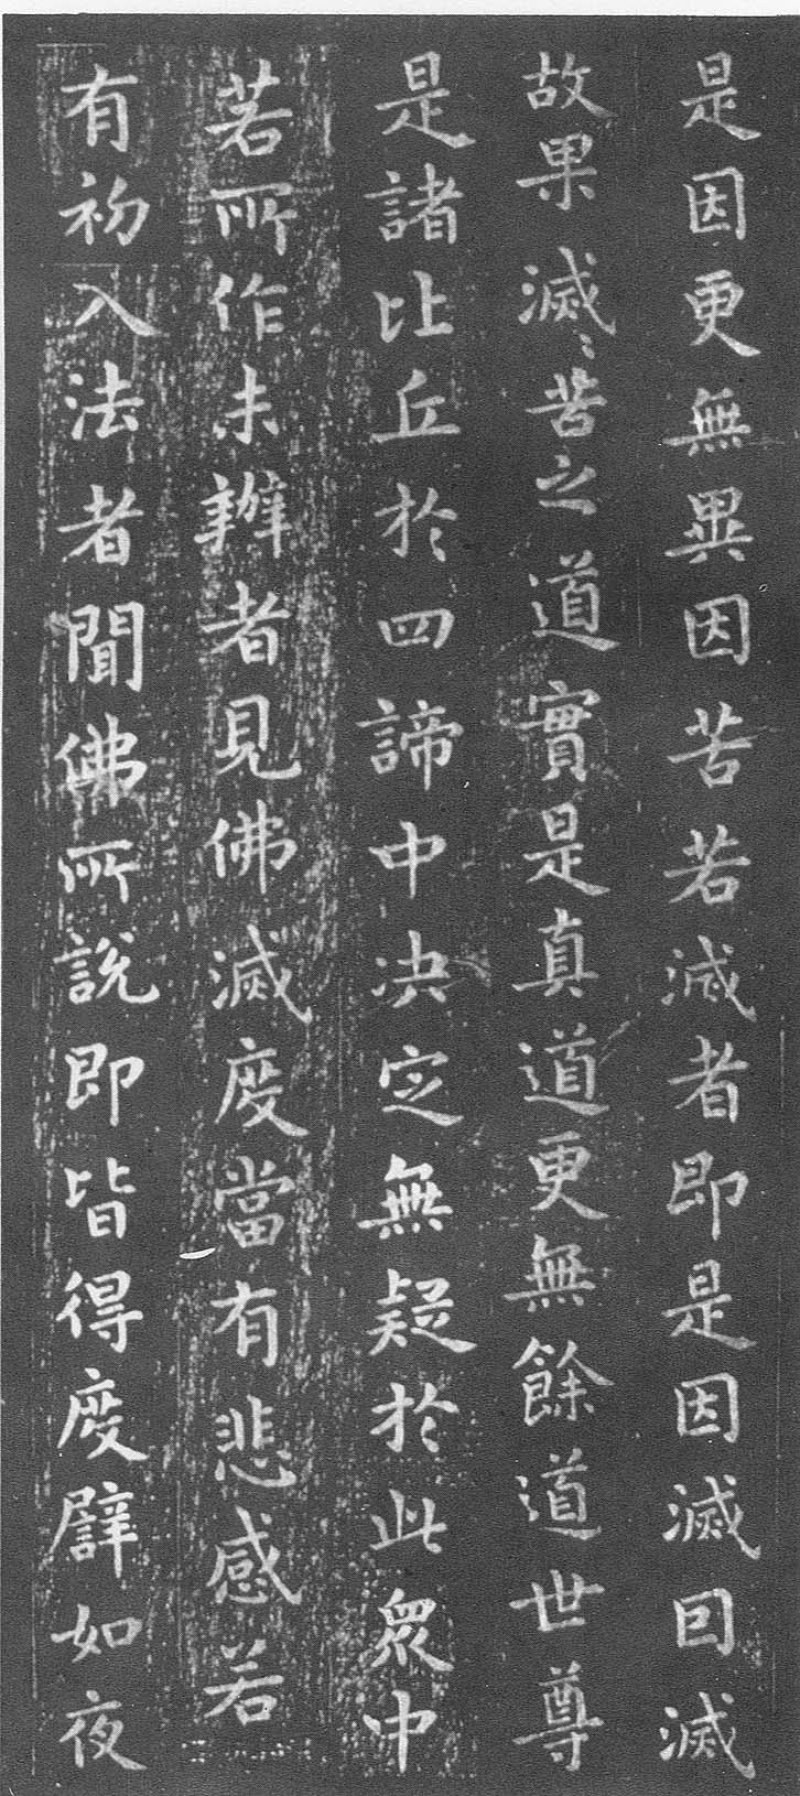 是因更無異因苦若滅者即是因滅因滅
故果滅〻苦之道實是真道更無餘道世尊
是諸比丘於四諦中决定無疑於此衆中
若所作未辦者見佛滅度當有悲感若
有初入法者聞佛所說即皆得度譬如夜